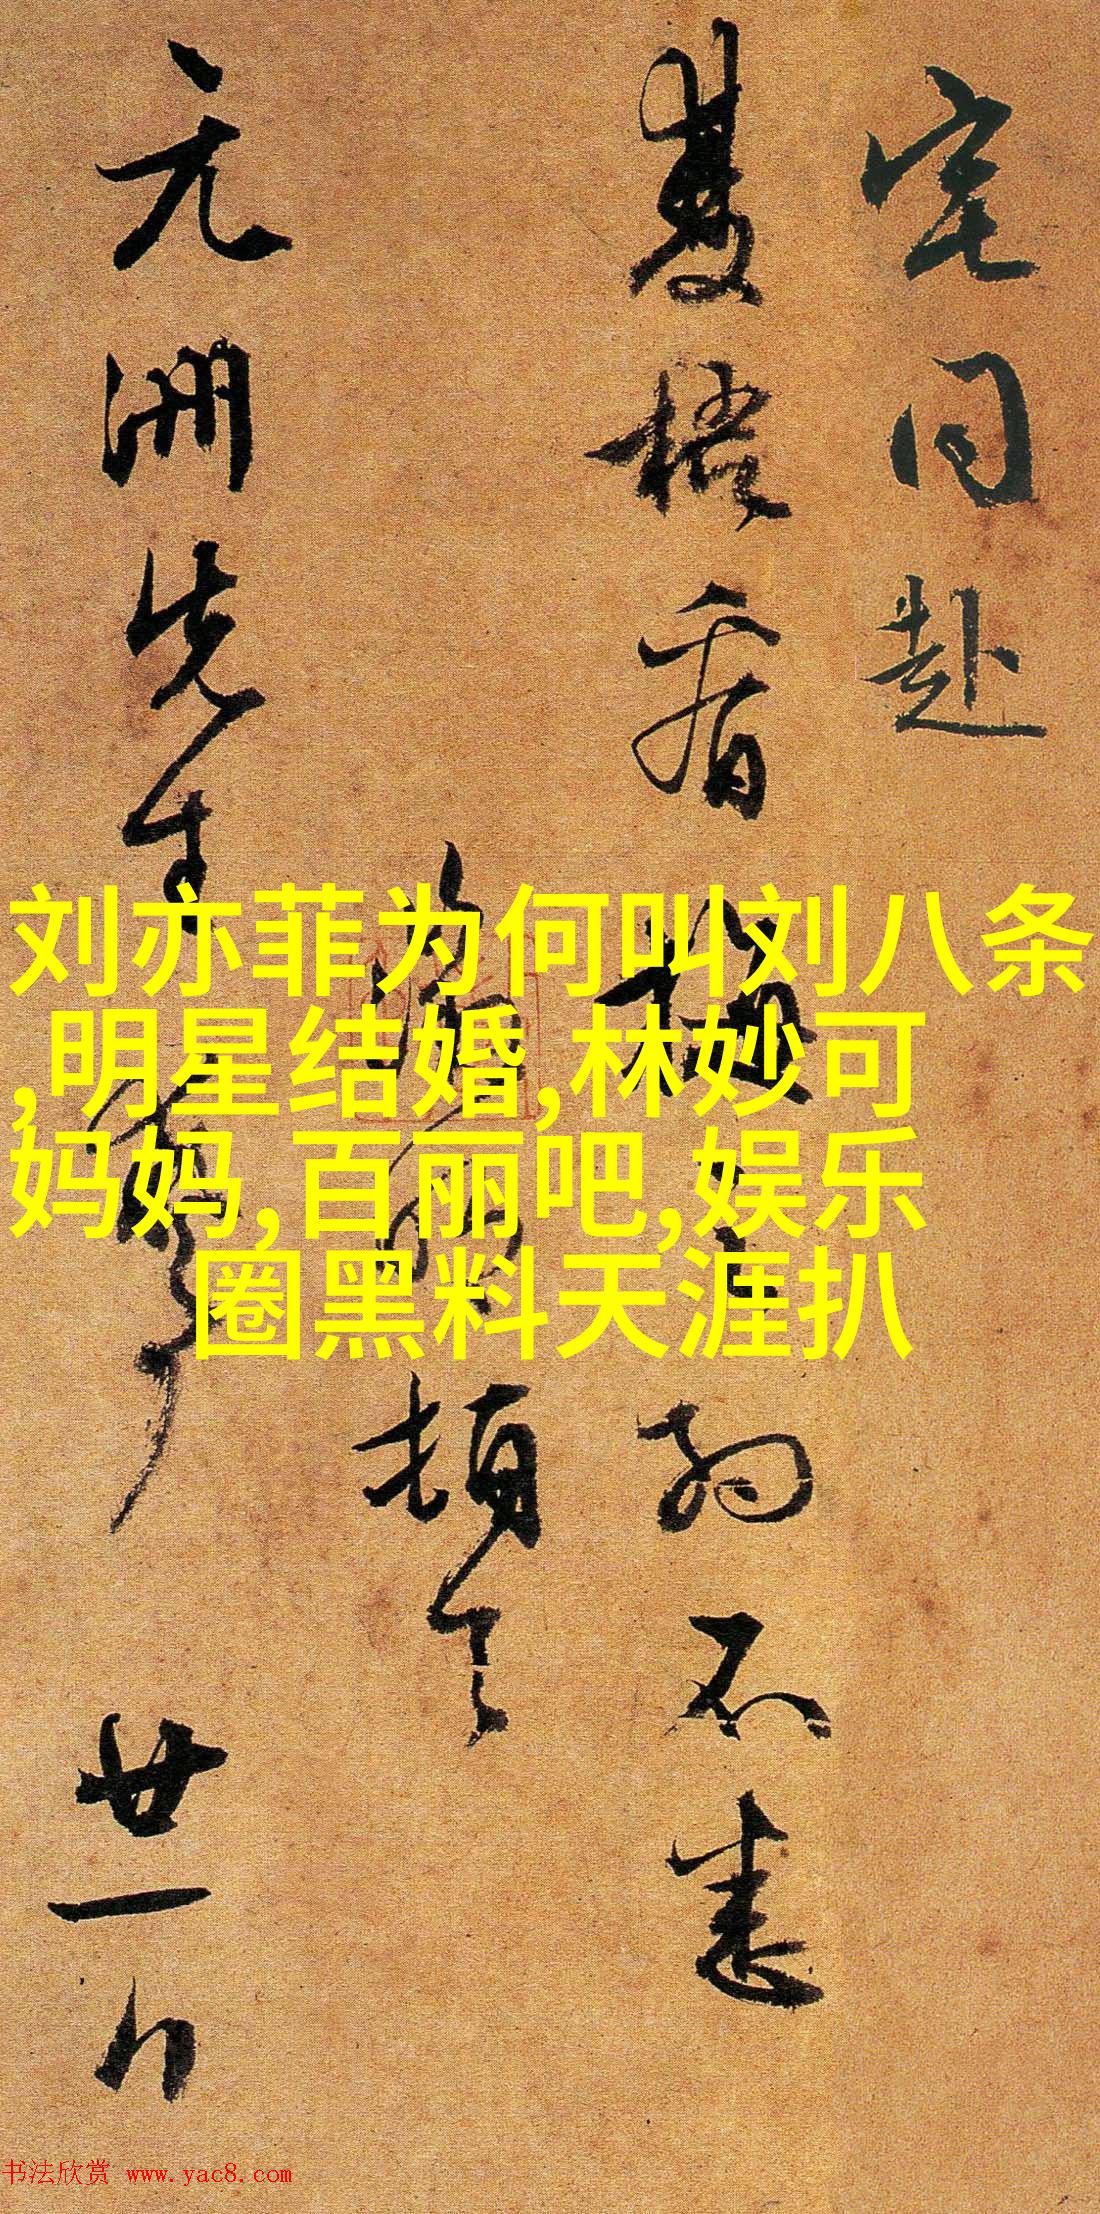 宅同赴
双梧看梅
不悉
顿
元洲先生
廿一日
刘亦菲为何叫刘八条
,明星结婚,林妙可
妈妈,百丽吧,娱乐
圈黑料天涯扒
书法欣赏 www.yac8.com